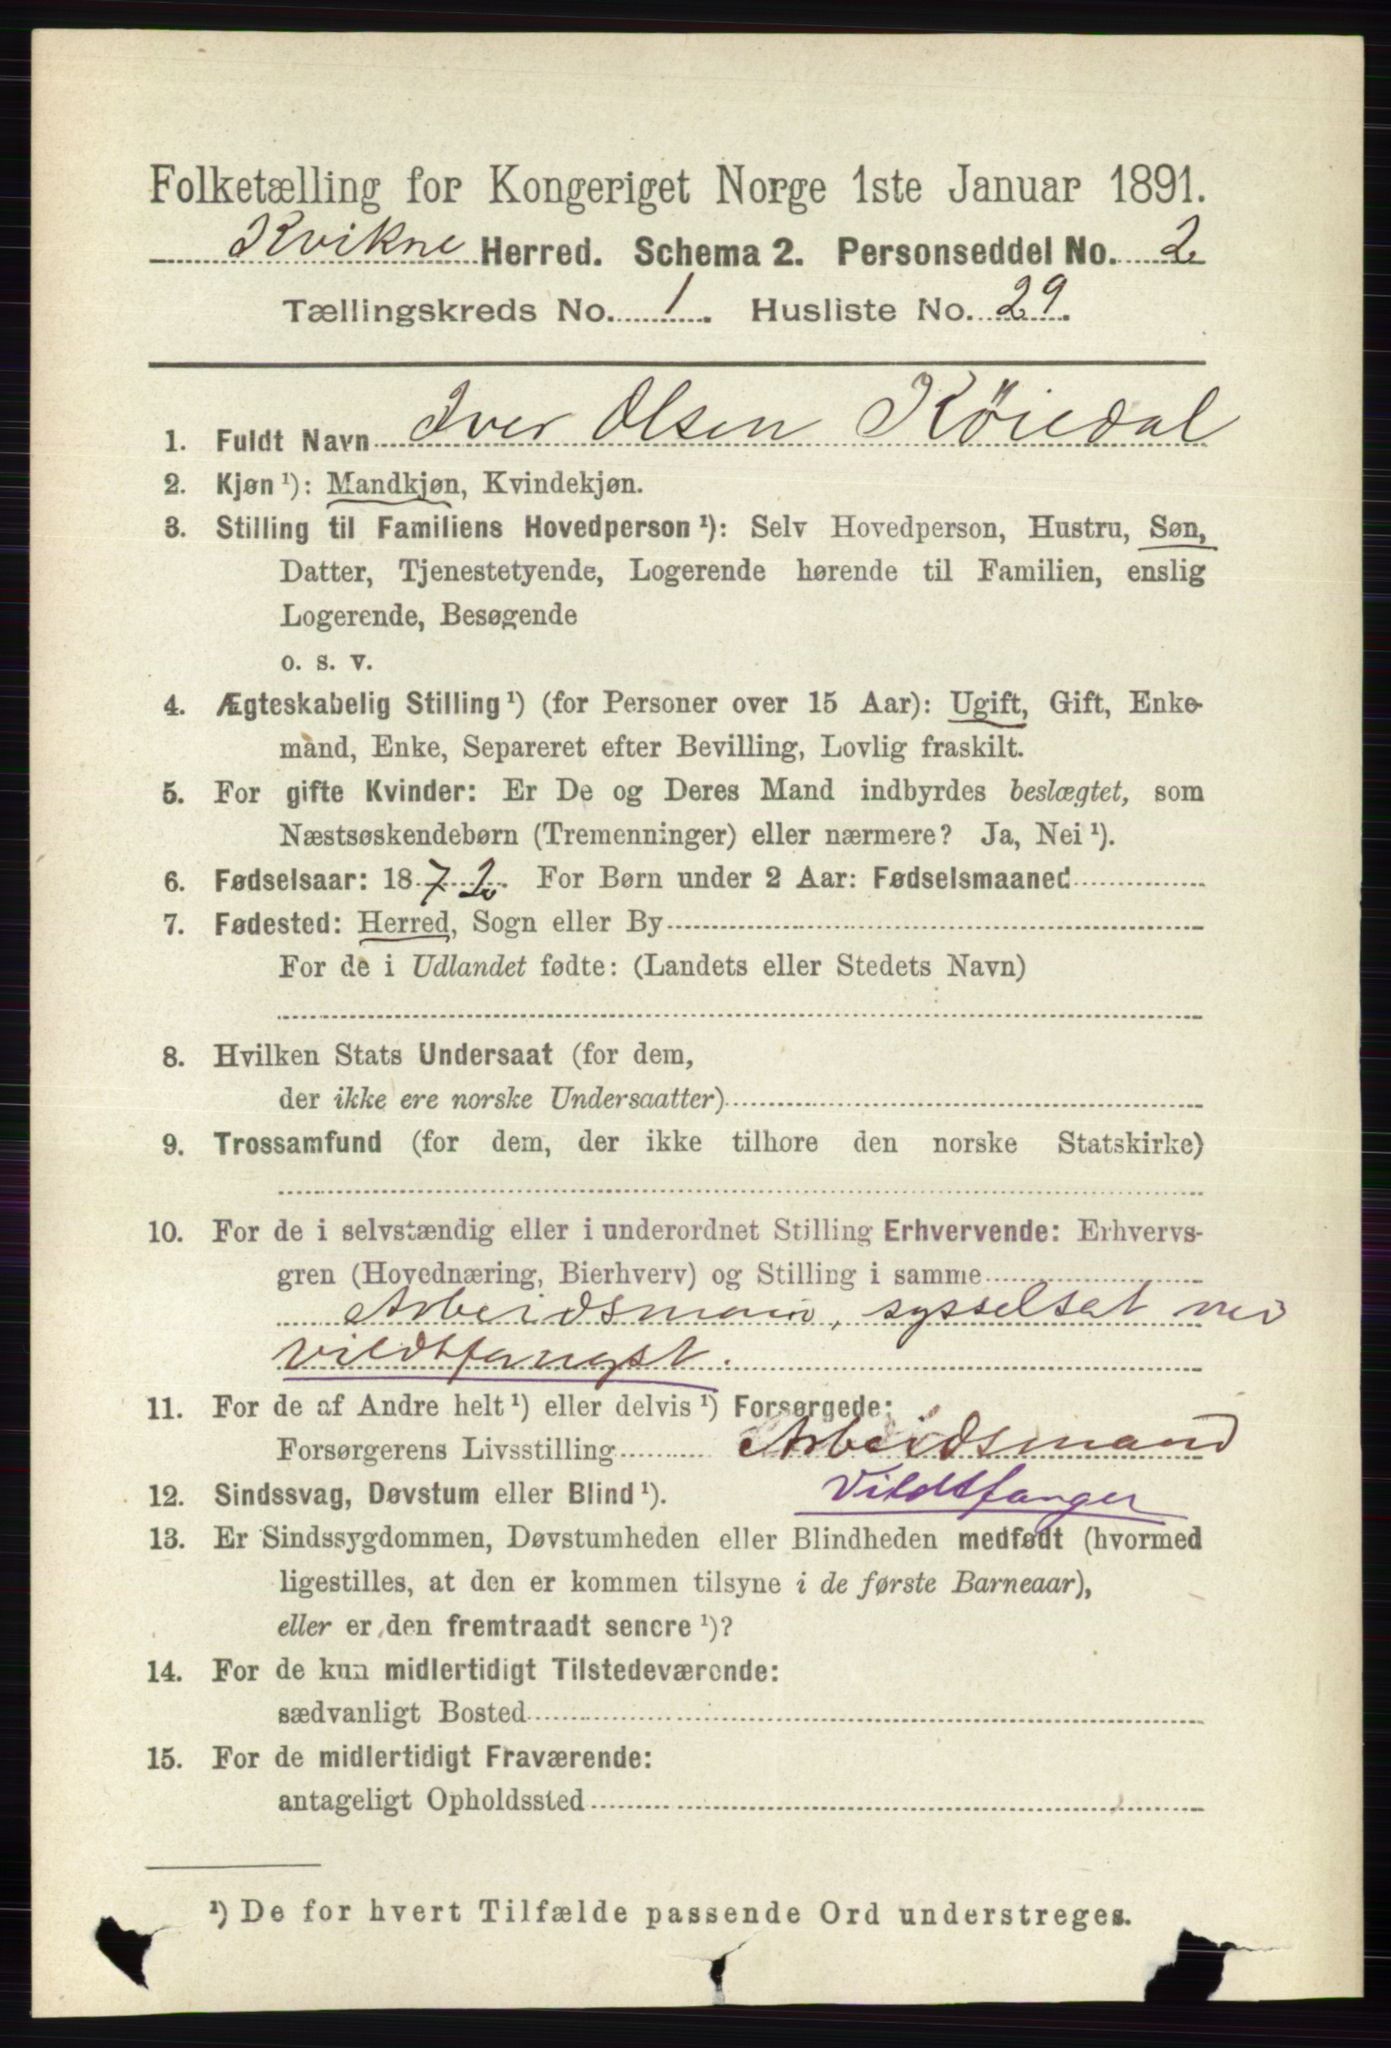 Folketælling for Kongeriget Norge 1ste Januar 1891.
Kvikne Herred. Schema 2. Personseddel No. 2
Tællingskreds No. 1. Husliste No. 29.
1. Fuldt Navn Iver Olsen Köiedal
2. Kjøn ¹): Mandkjøn, Kvindekjøn.
3. Stilling til Familiens Hovedperson ¹): Selv Hovedperson, Hustru, Søn,
Datter, Tjenestetyende, Logerende hørende til Familien, enslig
Logerende, Besøgende
o. s. v.
4. Ægteskabelig Stilling ¹) (for Personer over 15 Aar): Ugift, Gift, Enke-
mand, Enke, Separeret efter Bevilling, Lovlig fraskilt.
5. For gifte Kvinder: Er De og Deres Mand indbyrdes beslægtet, som
Næstsøskendebørn (Tremenninger) eller nærmere? Ja, Nei ¹).
6. Fødselsaar: 1872. For Børn under 2 Aar: Fødselsmaaned
7. Fødested: Herred, Sogn eller By
For de i Udlandet fødte: (Landets eller Stedets Navn)
8. Hvilken Stats Undersaat (for dem,
der ikke ere norske Undersaatter)
9. Trossamfund (for dem, der ikke tilhore den norske Statskirke)
10. For de i selvstændig eller i underordnet Stilling Erhvervende: Erhvervs-
gren (Hovednæring, Bierhverv) og Stilling i samme
Arbeidsman, sysselsat ved
vildtfangst.
11. For de af Andre helt ¹) eller delvis ¹) Forsørgede:
Forsørgerens Livsstilling Arbeidsmand
12. Sindssvag, Døvstum eller Blind ¹). Vildtfanger
13. Er Sindssygdommen, Døvstumheden eller Blindheden medfødt (hvormed
ligestilles, at den er kommen tilsyne i de første Barneaar),
eller er den fremtraadt senere ¹)?
14. For de kun midlertidigt Tilstedeværende:
sædvanligt Bosted
15. For de midlertidigt Fraværende:
antageligt Opholdssted
¹) De for hvert Tilfælde passende Ord understreges.